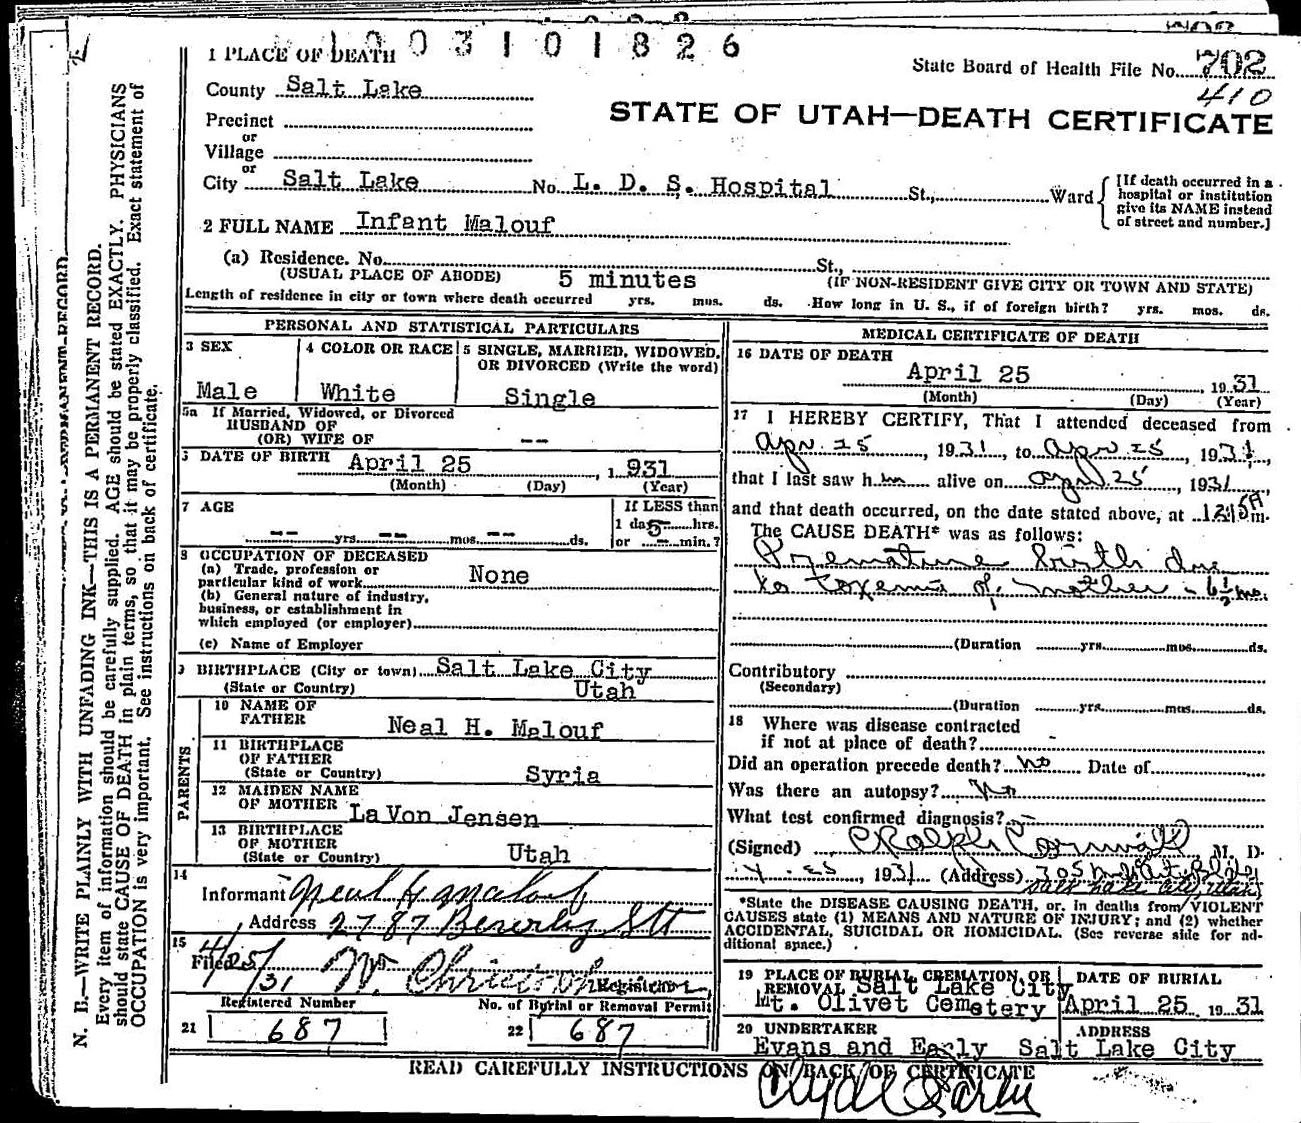 1003101826
1 PLACE OF DEATH
State Board of Health File No. 702
410
County Salt Lake
STATE OF UTAH—DEATH CERTIFICATE
Precinct
or
Village
or
City Salt Lake No. L. D. S. Hospital St., Ward
[If death occurred in a
hospital or institution
give its NAME instead
of street and number.]
2 FULL NAME Infant Malouf
(a) Residence. No. St.,
(USUAL PLACE OF ABODE) 5 minutes (IF NON-RESIDENT GIVE CITY OR TOWN AND STATE)
Length of residence in city or town where death occurred yrs. mos. ds. How long in U. S., if of foreign birth? yrs. mos. ds.
PERSONAL AND STATISTICAL PARTICULARS
3 SEX
Male
4 COLOR OR RACE
White
5 SINGLE, MARRIED, WIDOWED,
OR DIVORCED (Write the word)
Single
5a If Married, Widowed, or Divorced
HUSBAND OF
(OR) WIFE OF --
6 DATE OF BIRTH April 25, 1931
(Month) (Day) (Year)
7 AGE
-- yrs. -- mos. -- ds.
If LESS than
1 day 5 hrs.
or -- min.?
8 OCCUPATION OF DECEASED
(a) Trade, profession or
particular kind of work None
(b) General nature of industry,
business, or establishment in
which employed (or employer)
(c) Name of Employer
9 BIRTHPLACE (City or town) Salt Lake City
(State or Country) Utah
PARENTS
10 NAME OF
FATHER Neal H. Malouf
11 BIRTHPLACE
OF FATHER
(State or Country) Syria
12 MAIDEN NAME
OF MOTHER LaVon Jensen
13 BIRTHPLACE
OF MOTHER
(State or Country) Utah
14
Informant Neal H Malouf
Address 2787 Beverly Stt
15
Filed 4/25/31 W. Christopherson, Registrar
Registered Number
21 687
No. of Burial or Removal Permit
22 687
MEDICAL CERTIFICATE OF DEATH
16 DATE OF DEATH
April 25, 1931
(Month) (Day) (Year)
17 I HEREBY CERTIFY, That I attended deceased from
Apr. 25, 1931, to Apr 25, 1931,
that I last saw him alive on April 25, 1931,
and that death occurred, on the date stated above, at 12:15A m.
The CAUSE DEATH* was as follows:
Premature birth due
to toxemia of mother - 6½ mo.
(Duration yrs. mos. ds.
Contributory
(Secondary)
(Duration yrs. mos. ds.
18 Where was disease contracted
if not at place of death? -
Did an operation precede death? No Date of
Was there an autopsy? No
What test confirmed diagnosis? -
(Signed) C Ralph Cornwall M. D.
4 - 25, 1931 (Address) 305
Salt Lake City, Utah
*State the DISEASE CAUSING DEATH, or, in deaths from VIOLENT
CAUSES state (1) MEANS AND NATURE OF INJURY; and (2) whether
ACCIDENTAL, SUICIDAL OR HOMICIDAL. (See reverse side for ad-
ditional space.)
19 PLACE OF BURIAL, CREMATION, OR
REMOVAL Salt Lake City
Mt. Olivet Cemetery
DATE OF BURIAL
April 25, 1931
20 UNDERTAKER
Evans and Early
ADDRESS
Salt Lake City
READ CAREFULLY INSTRUCTIONS ON BACK OF CERTIFICATE
Clyde Early
N. B.—WRITE PLAINLY WITH UNFADING INK—THIS IS A PERMANENT RECORD.
Every item of information should be carefully supplied. AGE should be stated EXACTLY. PHYSICIANS
should state CAUSE OF DEATH in plain terms, so that it may be properly classified. Exact statement of
OCCUPATION is very important. See instructions on back of certificate.